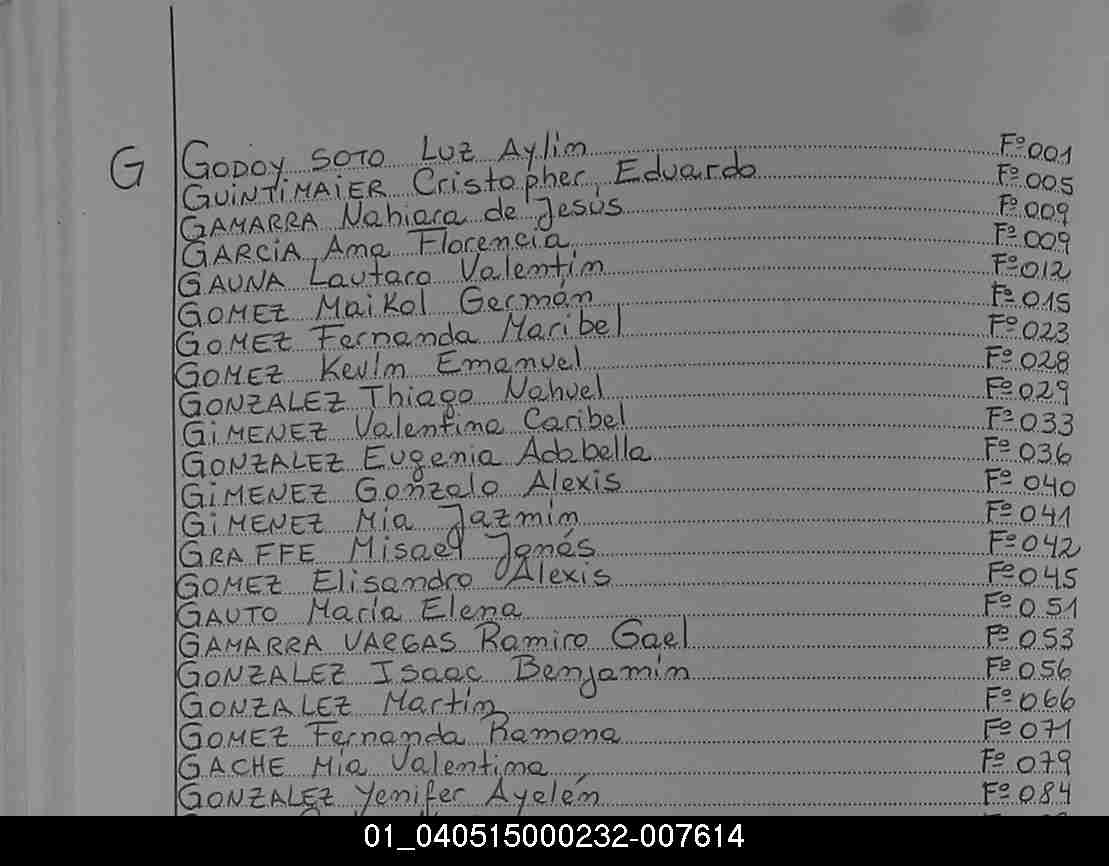 G GODOY SOTO Luz Aylin Fº 001
GUINTIMAIER Cristopher, Eduardo Fº 005
GAMARRA Nahiara de Jesús Fº 009
GARCIA, Ana Florencia Fº 009
GAUNA Lautaro Valentín Fº 012
GOMEZ Maikol Germán Fº 015
GOMEZ Fernanda Maribel Fº 023
GOMEZ Kevin Emanuel Fº 028
GONZALEZ Thiago Nahuel Fº 029
GIMENEZ Valentina Caribel Fº 033
GONZALEZ Eugenia Adabella Fº 036
GIMENEZ Gonzalo Alexis Fº 040
GIMENEZ Mia Jazmín Fº 041
GRAFFE Misael Jonás Fº 042
GOMEZ Elisandro Alexis Fº 045
GAUTO María Elena Fº 051
GAMARRA VARGAS Ramiro Gael Fº 053
GONZALEZ Isaac Benjamín Fº 056
GONZALEZ Martín Fº 066
GOMEZ Fernanda Ramona Fº 071
GACHE Mia Valentina Fº 079
GONZALEZ Yenifer Ayelén Fº 084
01_040515000232-007614